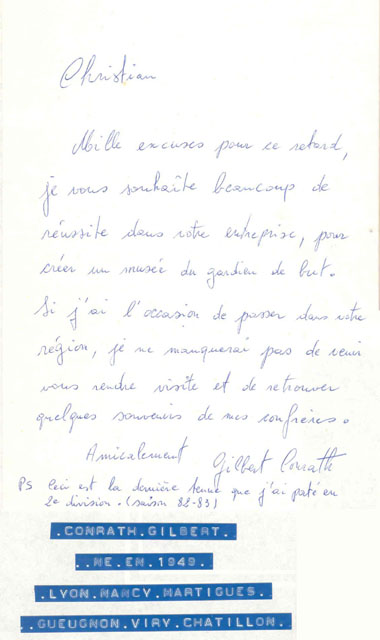 Christian
Mille excuses pour ce retard,
je vous souhaîte beaucoup de
réussite dans votre entreprise, pour
créer un musée du gardien de but.
Si j'ai l'occasion de passer dans votre
région, je ne manquerai pas de venir
vous rendre visite et de retrouver
quelques souvenirs de mes confrères.
Amicalement Gilbert Conrath
PS Ceci est la dernière tenue que j'ai porté en
2e division. (saison 82-83)
.CONRATH.GILBERT.
..NE.EN.1949.
.LYON.NANCY.MARTIGUES.
.GUEUGNON.VIRY.CHATILLON.